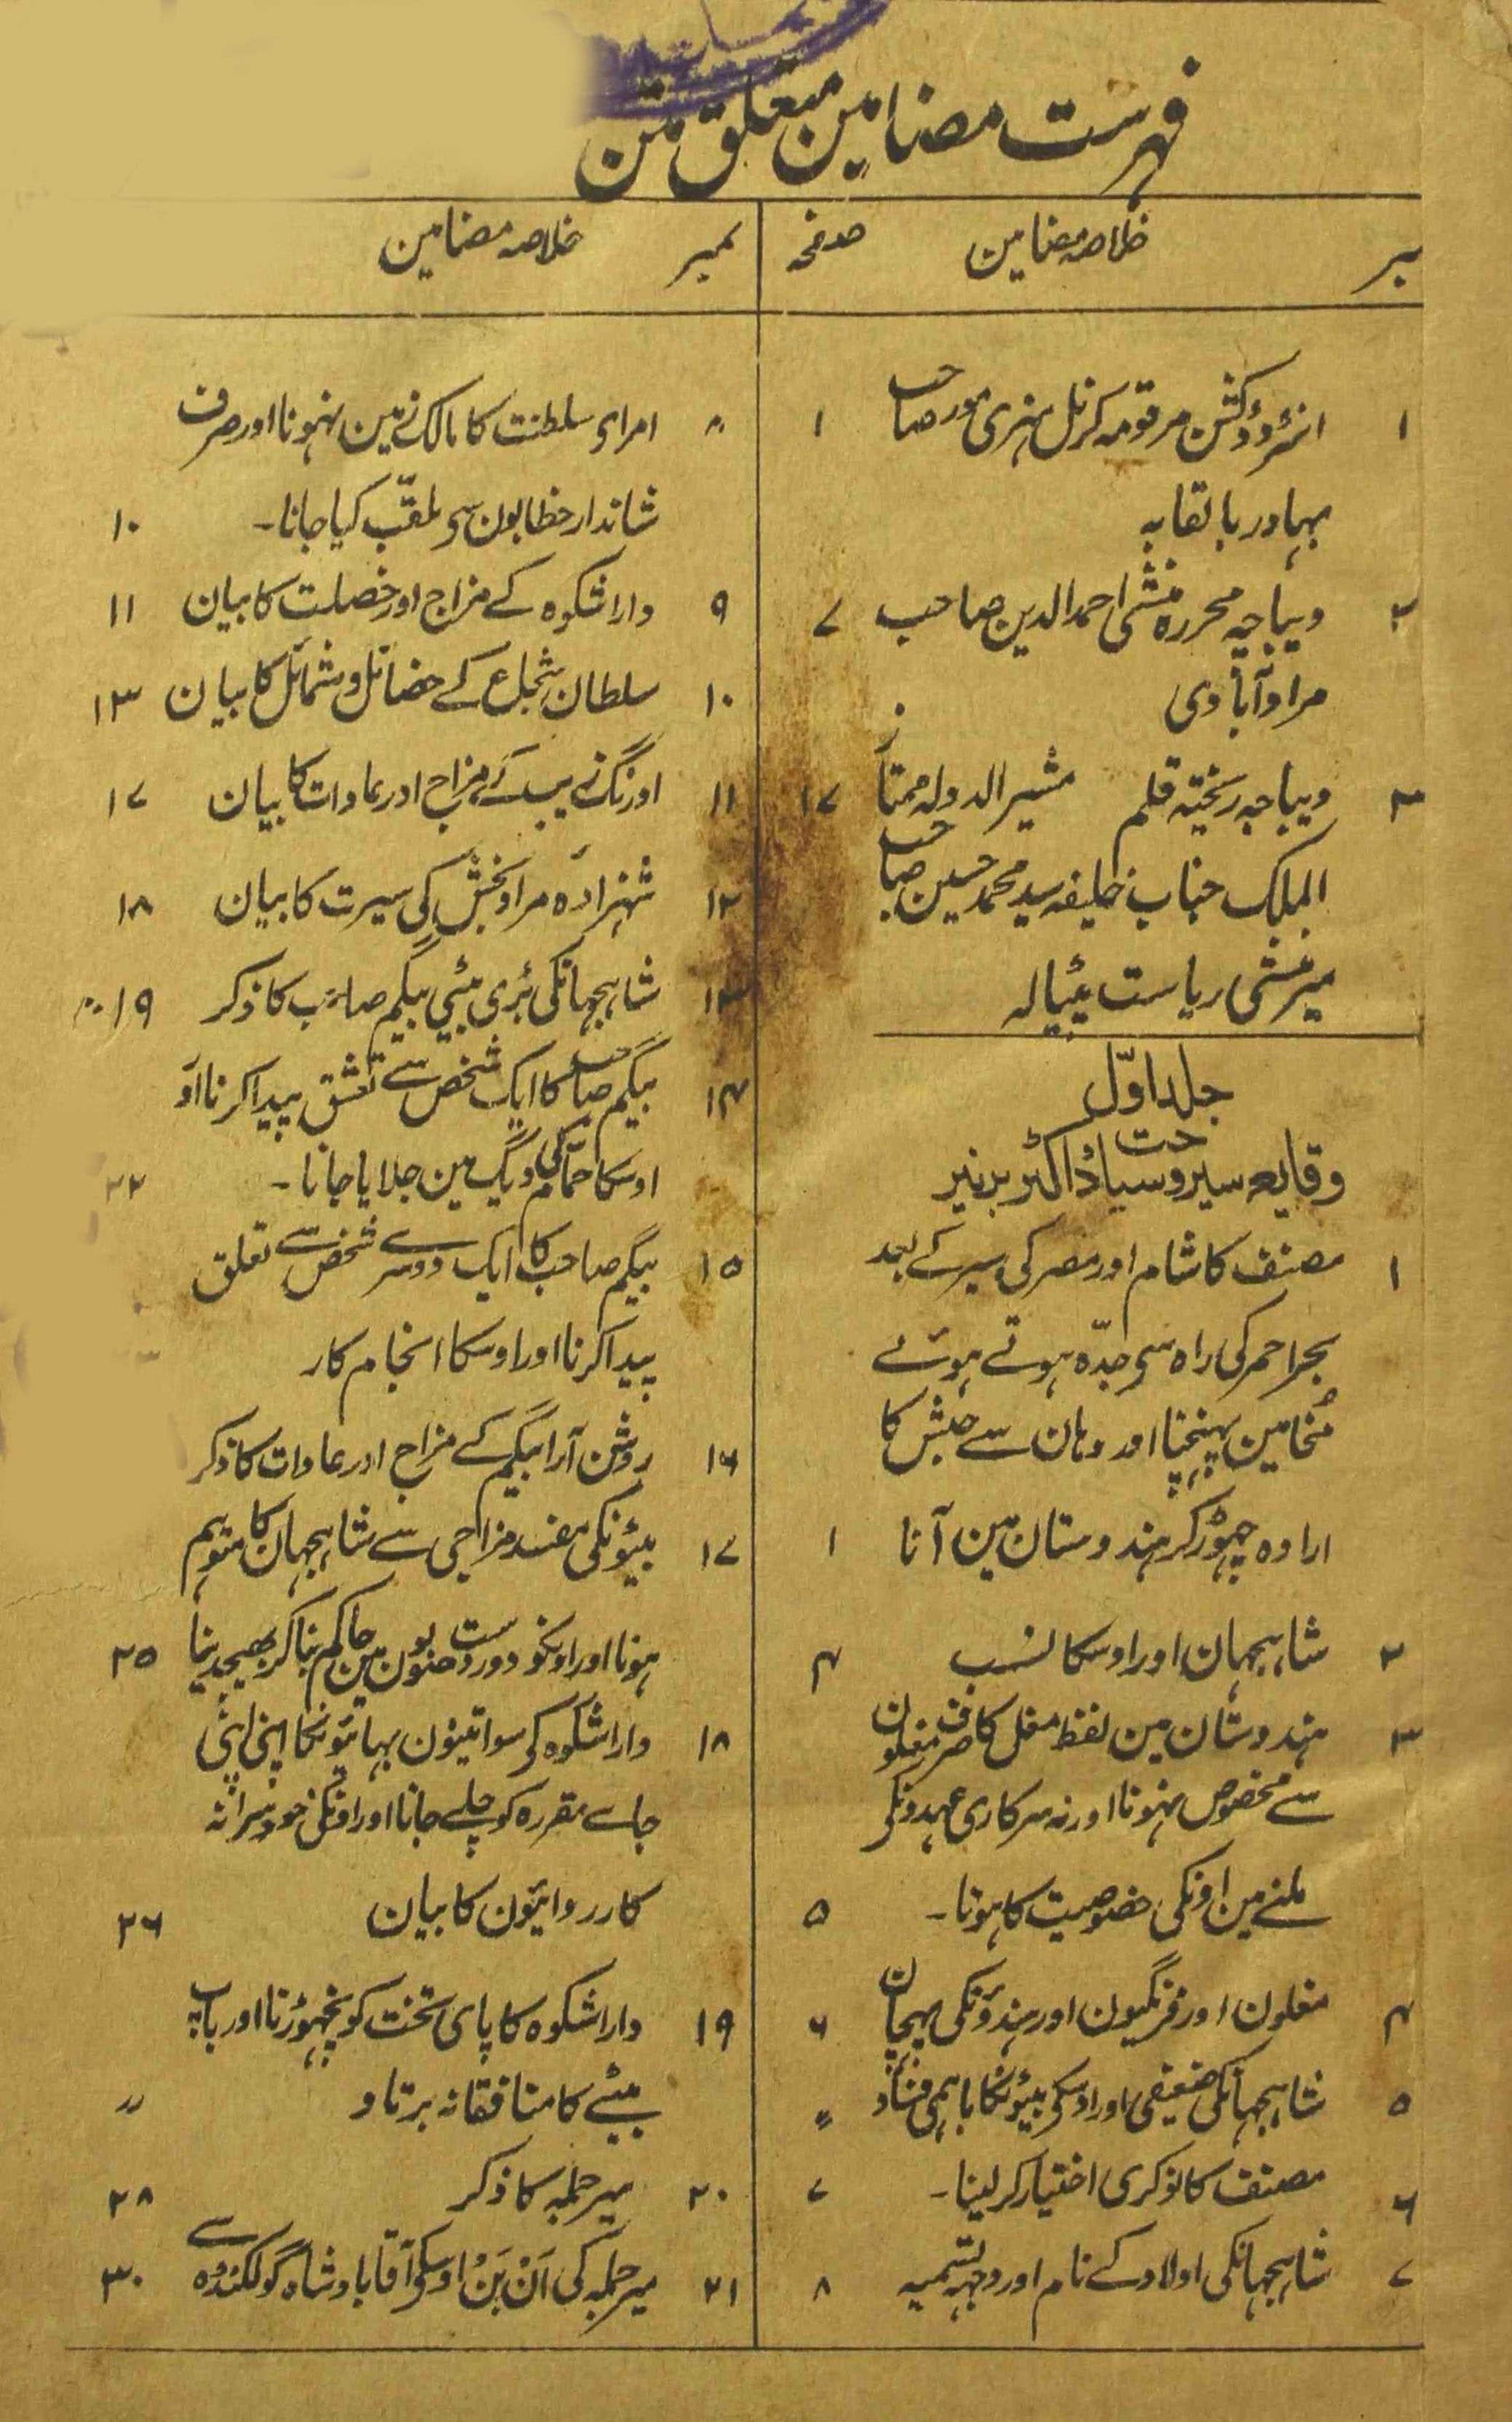 فہرست مضامین متعلق متن
نمبر خلاصہ مضامین صفحہ
۱ انٹروڈکشن مرقومہ کرنل ہنری مور صاحب ۱
بہادر بالقابہ
۲ دیباچہ محررہ منشی احمد الدین صاحب ۷
مرادآبادی
۳ دیباچہ ریختہ قلم مشیر الدولہ ممتاز ۱۷
الملک جناب خلیفہ سید محمد حسین صاحب
میر منشی ریاست پٹیالہ
جلد اوّل
وقایع سیر و سیاحت ڈاکٹر برنیر
۱ مصنف کا شام اور مصر کی سیر کے بعد
بحر احمر کی راہ سی جدّہ ہوتے ہوئے
مُخا مین پہنچنا اور وہان سے حبش کا
ارادہ چھوڑ کر ہندوستان مین آنا ۱
۲ شاہجہان اور اوسکا نسب ۴
۳ ہندوستان مین لفظ مغل کا صرف مغلون
سے مخصوص نہونا اور نہ سرکاری عہدونکی
ملنے مین اونکی خصوصیت کا ہونا۔ ۵
۴ مغلون اور فرنگیون اور ہندؤنکی پہچان ۶
۵ شاہجہانکی ضعیفی اور اوسکی بیٹونکا باہمی فساد 〃
۶ مصنف کا نوکری اختیار کر لینا۔ ۷
۷ شاہجہانکی اولاد کے نام اور وجہہ تسمیہ ۸
نمبر خلاصہ مضامین
۸ امرای سلطنت کا مالک زمین نہونا اور صرف
شاندار خطابون سی ملقّب کیا جانا۔ ۱۰
۹ داراشکوہ کے مزاج اور خصلت کا بیان ۱۱
۱۰ سلطان شجاع کے خصائل و شمائل کا بیان ۱۳
۱۱ اورنگ زیب کے مزاج اور عادات کا بیان ۱۷
۱۲ شہزادہ مراد بخش کی سیرت کا بیان ۱۸
۱۳ شاہجہانکی بڑی بیٹی بیگم صاحب کا ذکر ۱۹
۱۴ بیگم صاحب کا ایک شخص سے تعشق پیدا کرنا اَو
اوسکا حمّام کی دیگ مین جلایا جانا۔ ۲۲
۱۵ بیگم صاحب کا ایک دوسرے شخص سے تعلق
پیدا کرنا اور اوسکا انجام کار
۱۶ روشن آرا بیگم کے مزاج اور عادات کا ذکر
۱۷ بیٹونکی مفسد مزاجی سے شاہجہان کا متوہم
ہونا اور اونکو دور دست صوبون مین حاکم بنا کر بھیجدینا ۲۵
۱۸ داراشکوہ کی سوا تینون بہائیونکا اپنی اپنی
جاے مقررہ کو چلے جانا اور اونکی خودسرانہ
کارروائیون کا بیان ۲۶
۱۹ داراشکوہ کا پای تخت کو نچھوڑنا اور باپ
بیٹے کا منافقانہ برتاو 〃
۲۰ میر جملہ کا ذکر ۲۸
۲۱ میر جملہ کی اَنْ بَنْ اوسکی آقا بادشاہ گولکنڈہ سے ۳۰